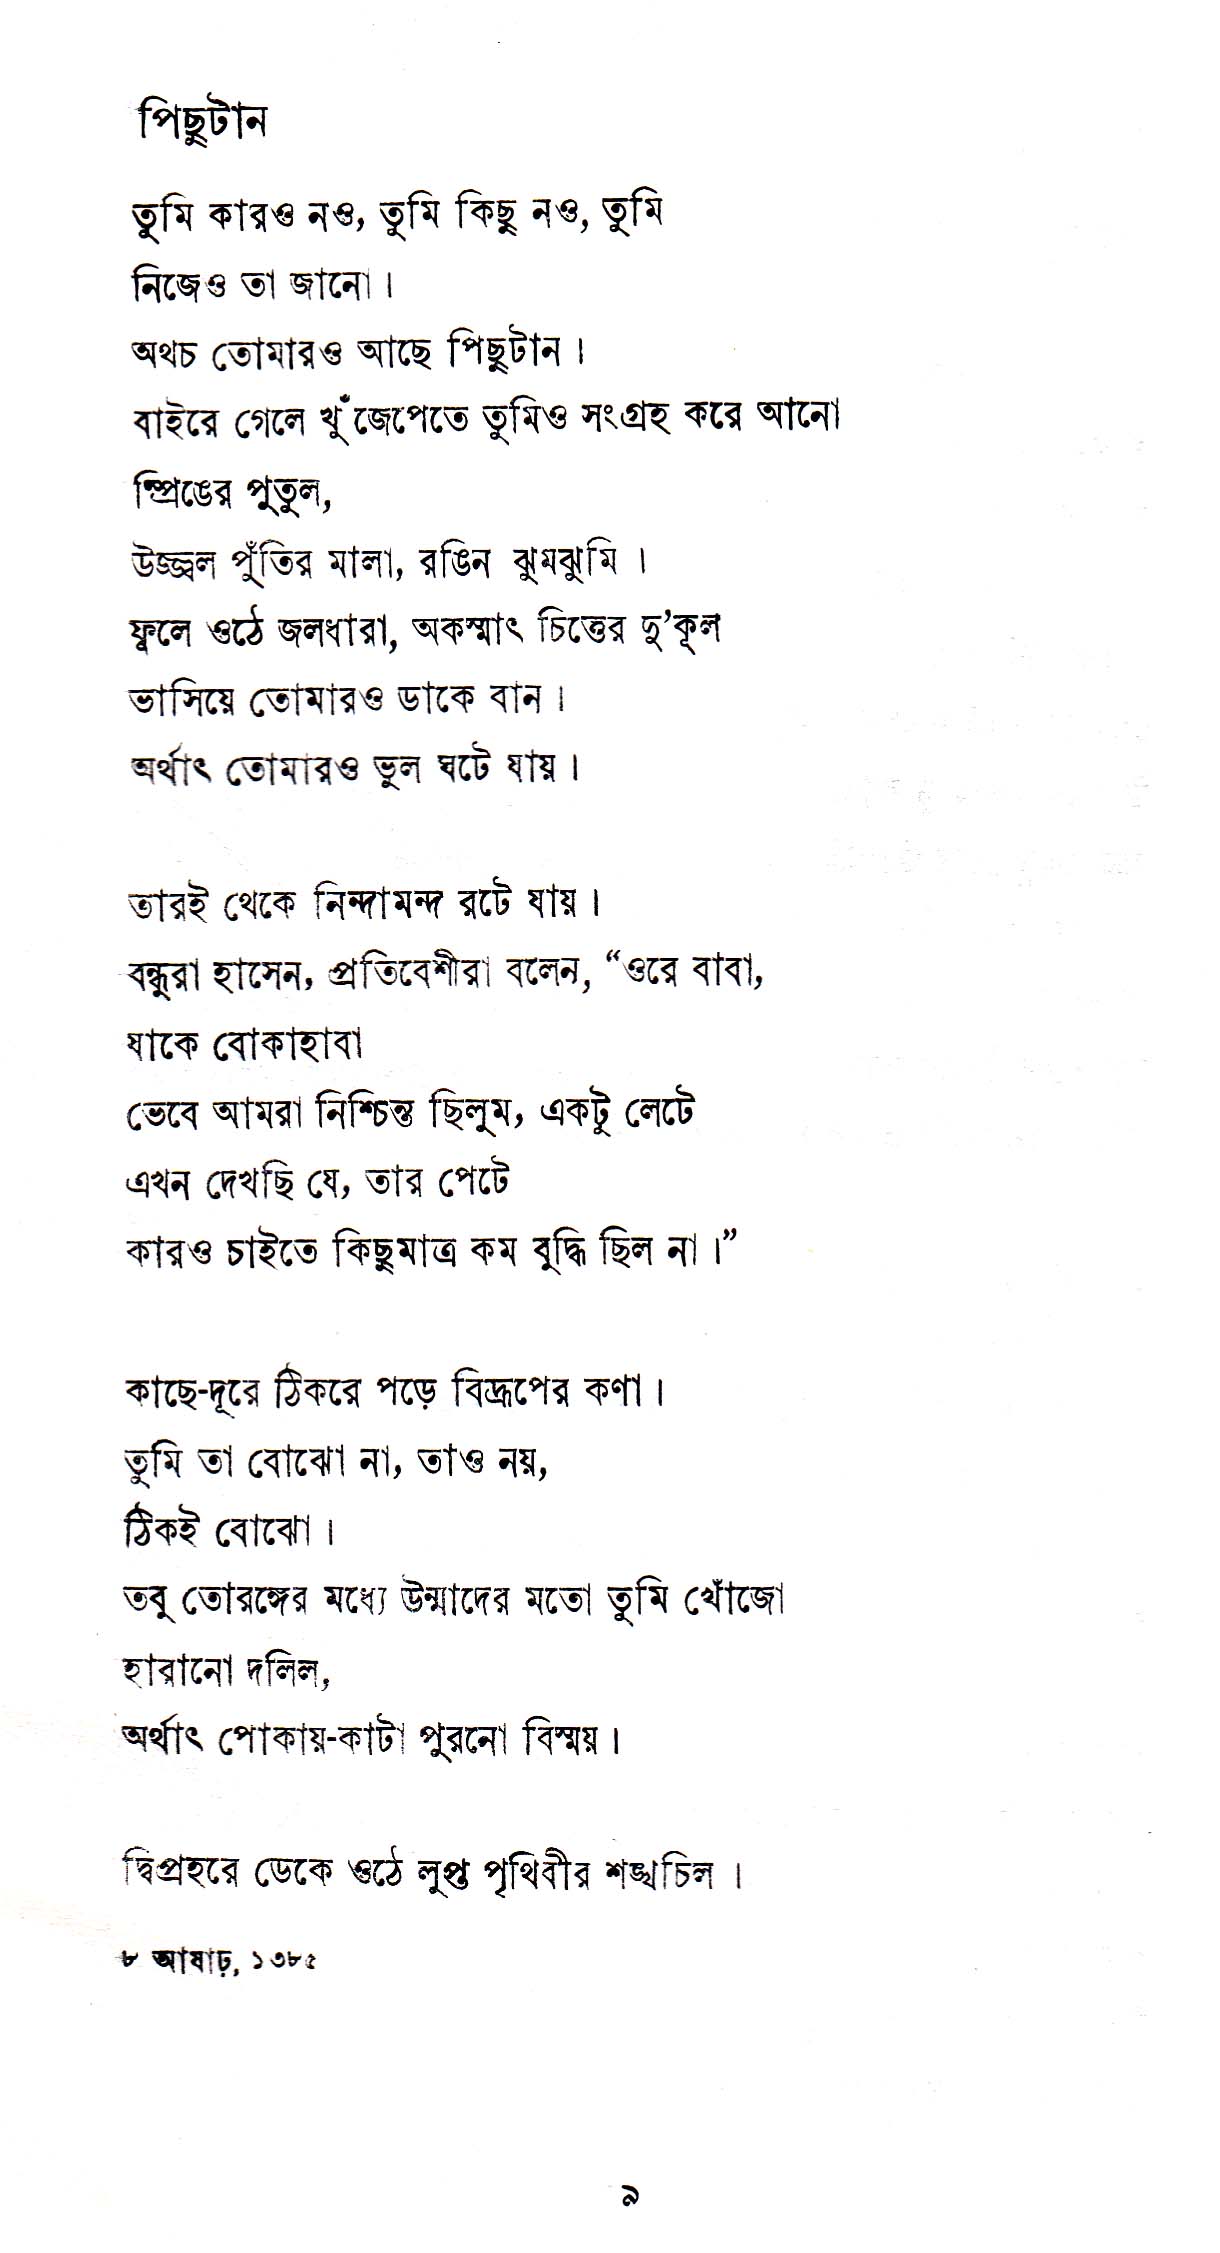 পিছুটান
তুমি কারও নও, তুমি কিছু নও, তুমি
নিজেও তা জানো।
অথচ তোমারও আছে পিছুটান।
বাইরে গেলে খুঁজেপেতে তুমিও সংগ্রহ করে আনো
স্প্রিঙের পুতুল,
উজ্জ্বল পুঁতির মালা, রঙিন ঝুমঝুমি।
ফুলে ওঠে জলধারা, অকস্মাৎ চিত্তের দু’কূল
ভাসিয়ে তোমারও ডাকে বান।
অর্থাৎ তোমারও ভুল ঘটে যায়।
তারই থেকে নিন্দামন্দ রটে যায়।
বন্ধুরা হাসেন, প্রতিবেশীরা বলেন, “ওরে বাবা,
যাকে বোকাহাবা
ভেবে আমরা নিশ্চিন্ত ছিলুম, একটু লেটে
এখন দেখছি যে, তার পেটে
কারও চাইতে কিছুমাত্র কম বুদ্ধি ছিল না।”
কাছে-দূরে ঠিকরে পড়ে বিদ্রূপের কণা।
তুমি তা বোঝো না, তাও নয়,
ঠিকই বোঝো।
তবু তোরঙ্গের মধ্যে উন্মাদের মতো তুমি খোঁজো
হারানো দলিল,
অর্থাৎ পোকায়-কাটা পুরনো বিস্ময়।
দ্বিপ্রহরে ডেকে ওঠে লুপ্ত পৃথিবীর শঙ্খচিল।
৮ আষাঢ়, ১৩৮৫
৯